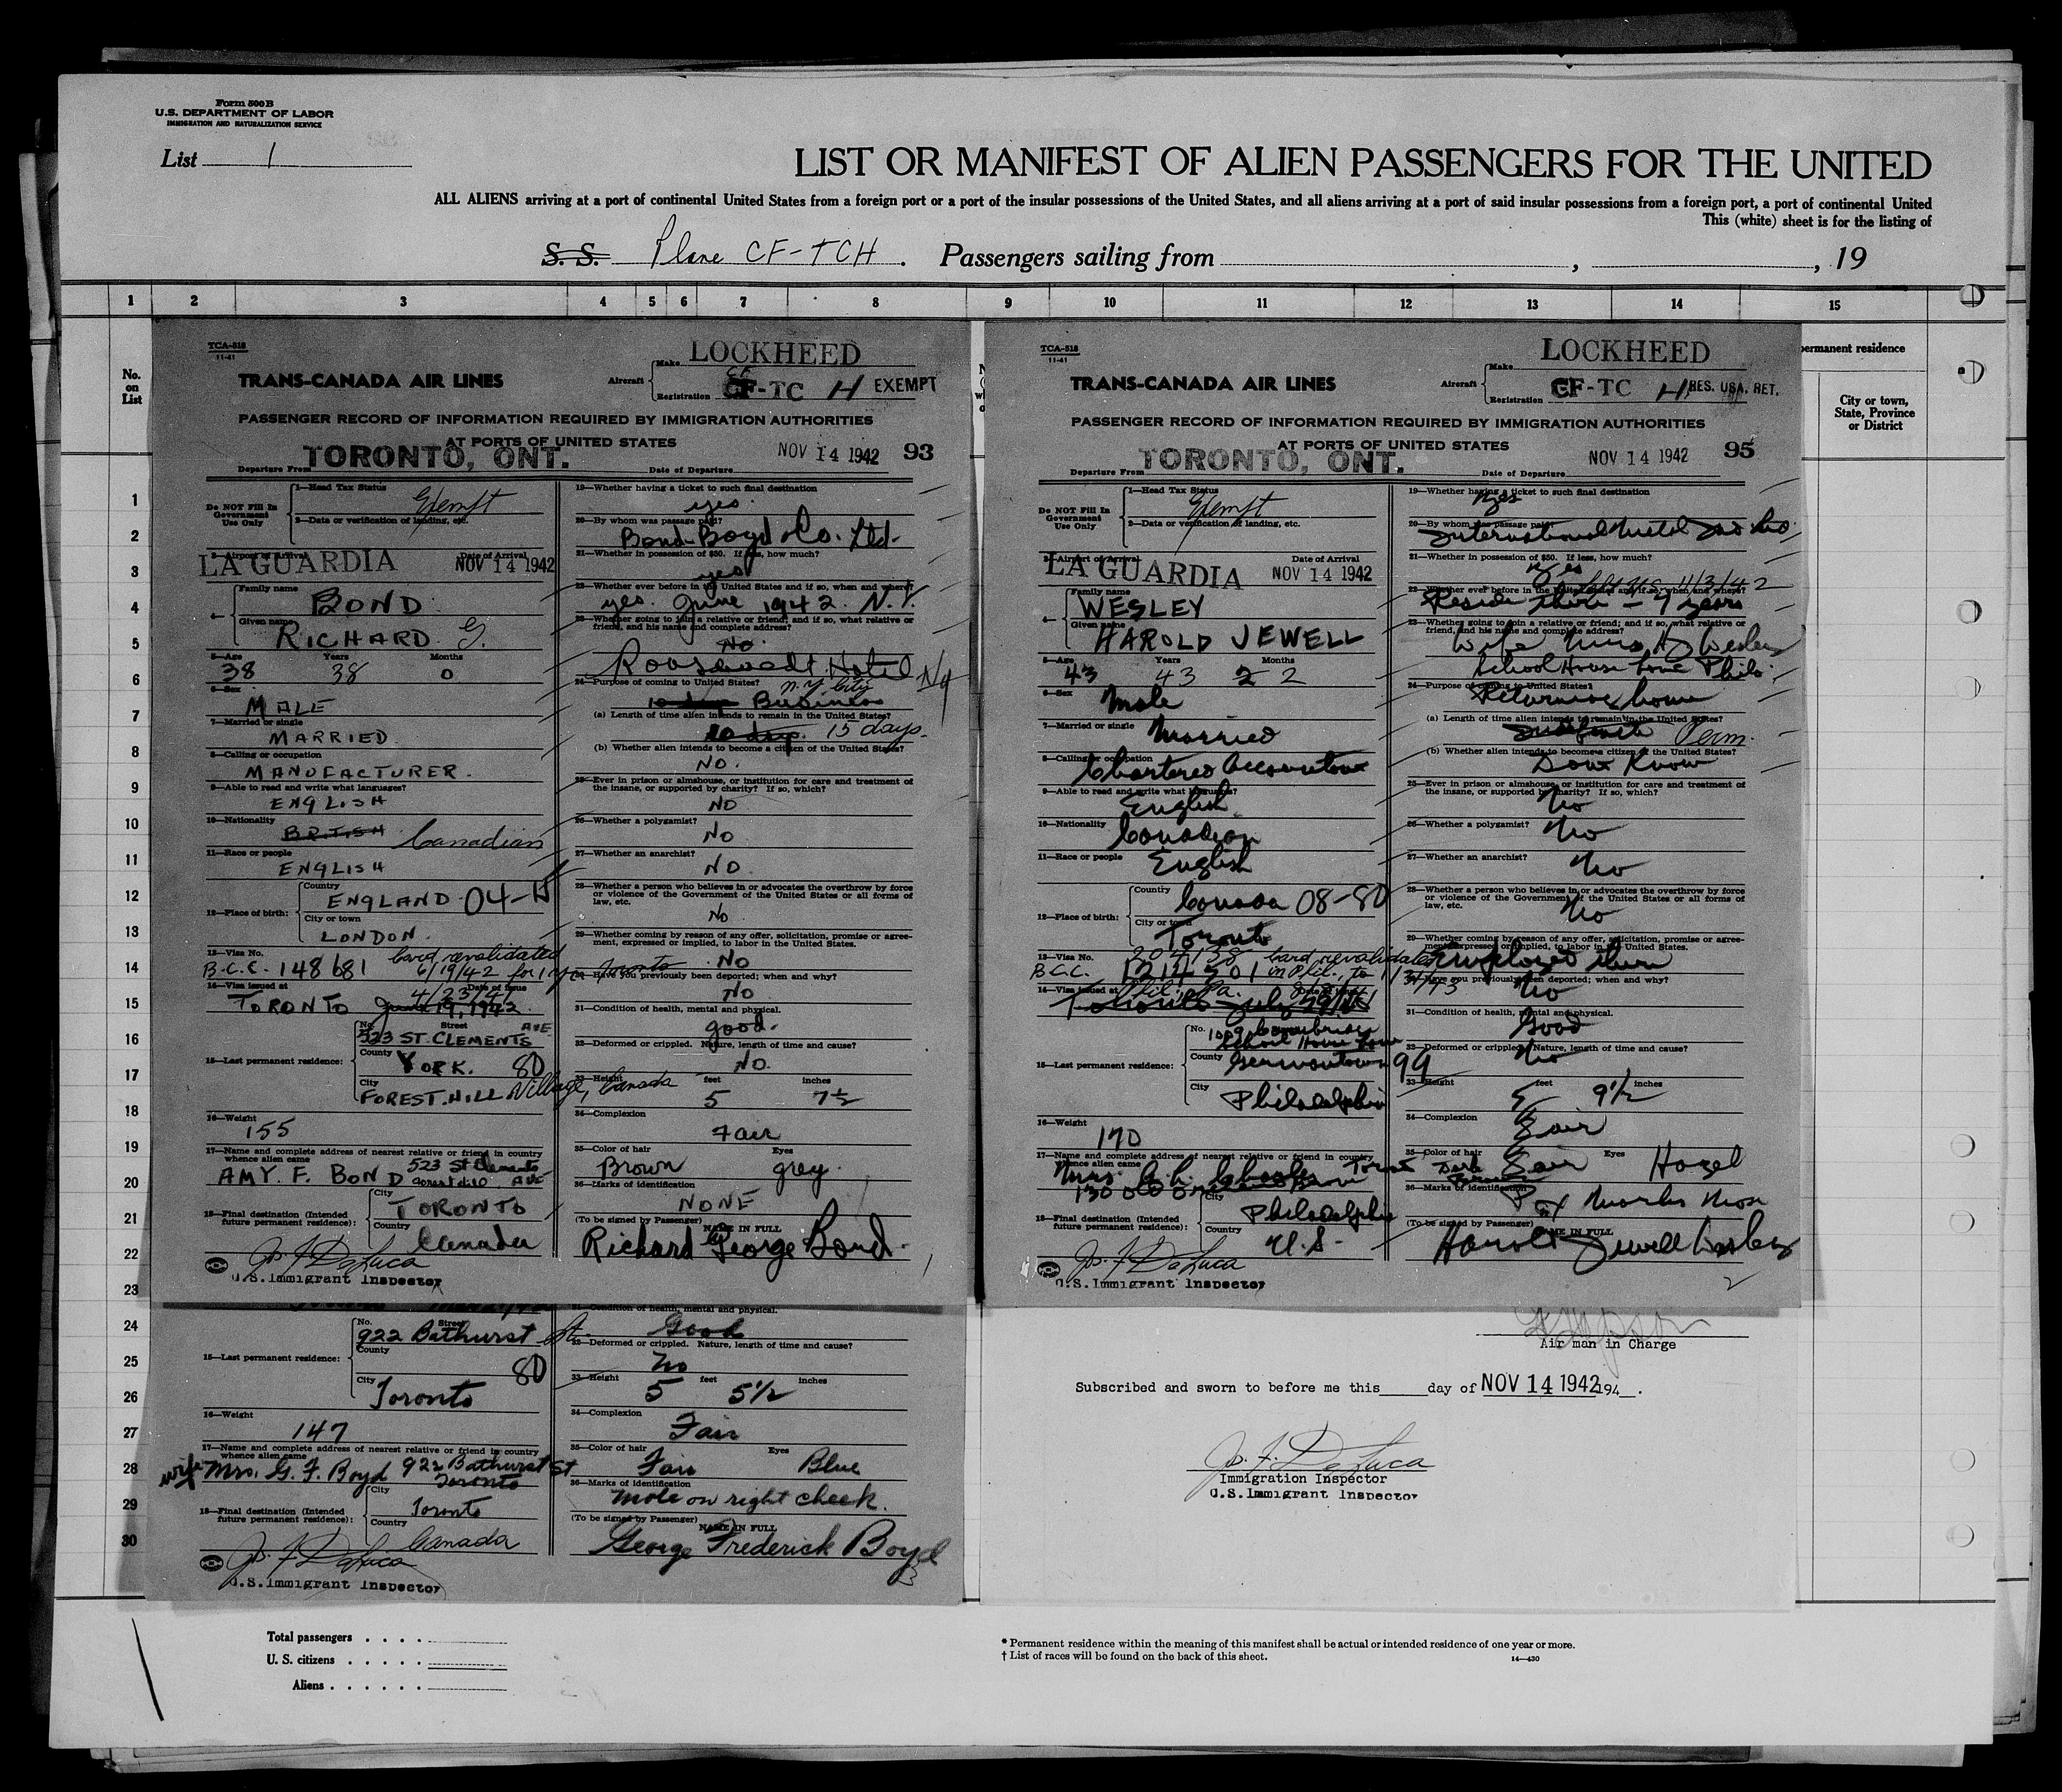 Form 500 B
U.S. DEPARTMENT OF LABOR
IMMIGRATION AND NATURALIZATION SERVICE
List 1
LIST OR MANIFEST OF ALIEN PASSENGERS FOR THE UNITED
ALL ALIENS arriving at a port of continental United States from a foreign port or a port of the insular possessions of the United States, and all aliens arriving at a port of said insular possessions from a foreign port, a port of continental United
This (white) sheet is for the listing of
S. S. Plane CF-TCH. Passengers sailing from , , 19
1 2 3 4 5 6 7 8 9 10 11 12 13 14 15
No.
on
List
permanent residence
City or town,
State, Province
or District
1
2
3
4
5
6
7
8
9
10
11
12
13
14
15
16
17
18
19
20
21
22
23
24
25
26
27
28
29
30
TCA-518
11-41
TRANS-CANADA AIR LINES
Aircraft
Make LOCKHEED
Registration CF-TC H EXEMPT
PASSENGER RECORD OF INFORMATION REQUIRED BY IMMIGRATION AUTHORITIES
AT PORTS OF UNITED STATES
Departure From TORONTO, ONT. Date of Departure NOV 14 1942 93
Do NOT Fill In
Government
Use Only
1—Head Tax Status Exempt
2—Data or verification of landing, etc.
3—Airport of Arrival LA GUARDIA Date of Arrival NOV 14 1942
4—
Family name BOND
Given name RICHARD G.
5—Age 38 Years 38 Months 0
6—Sex
MALE
7—Married or single
MARRIED
8—Calling or occupation
MANUFACTURER.
9—Able to read and write what languages?
ENGLISH
10—Nationality
BRITISH Canadian
11—Race or people
ENGLISH
12—Place of birth:
Country
ENGLAND 04-
City or town
LONDON.
13—Visa No. Card revalidated
B.C.C. 148681 6/19/42 for 1 yr Toronto
14—Visa issued at 4/23/41 Date of Issue
TORONTO June 19, 1942
15—Last permanent residence:
No. Street AVE
523 ST. CLEMENTS
County
YORK. 80
City
FOREST HILL Village, Canada
16—Weight
155
17—Name and complete address of nearest relative or friend in country
whence alien came
AMY F. BOND 523 St Clements
Forest Hill AVE
18—Final destination (Intended
future permanent residence):
City
TORONTO
Country
Canada
Jos. F. DeLuca
U.S. Immigrant Inspector
19—Whether having a ticket to such final destination
yes
20—By whom was passage paid?
Bond-Boyd Co. Ltd.
21—Whether in possession of $50. If less, how much?
yes
22—Whether ever before in the United States and if so, when and where?
yes. June 1942. N.Y.
23—Whether going to join a relative or friend; and if so, what relative or
friend, and his name and complete address?
No
Roosevelt Hotel NY
N.Y. City
24—Purpose of coming to United States?
10 days Business
(a) Length of time alien intends to remain in the United States?
10 days. 15 days.
(b) Whether alien intends to become a citizen of the United States?
NO.
25—Ever in prison or almshouse, or institution for care and treatment of
the insane, or supported by charity? If so, which?
NO
26—Whether a polygamist?
NO
27—Whether an anarchist?
NO.
28—Whether a person who believes in or advocates the overthrow by force
or violence of the Government of the United States or all forms of
law, etc.
NO
29—Whether coming by reason of any offer, solicitation, promise or agree-
ment, expressed or implied, to labor in the United States.
NO
30—Have you previously been deported; when and why?
NO
31—Condition of health, mental and physical.
good.
32—Deformed or crippled. Nature, length of time and cause?
NO.
33—Height feet inches
5 7½
34—Complexion
Fair
35—Color of hair Eyes
Brown grey.
36—Marks of identification
NONE
(To be signed by Passenger) NAME IN FULL
Richard George Bond.
1
TCA-518
11-41
TRANS-CANADA AIR LINES
Aircraft
Make LOCKHEED
Registration CF-TC H RES. USA. RET.
PASSENGER RECORD OF INFORMATION REQUIRED BY IMMIGRATION AUTHORITIES
AT PORTS OF UNITED STATES
Departure From TORONTO, ONT. Date of Departure NOV 14 1942 95
Do NOT Fill In
Government
Use Only
1—Head Tax Status Exempt
2—Data or verification of landing, etc.
3—Airport of Arrival LA GUARDIA Date of Arrival NOV 14 1942
4—
Family name WESLEY
Given name HAROLD JEWELL
5—Age 43 Years 43 Months 2 2
6—Sex
Male
7—Married or single
Married
8—Calling or occupation
Chartered Accountant
9—Able to read and write what languages?
English
10—Nationality
Canadian
11—Race or people
English
12—Place of birth:
Country
Canada 08-80
City or town
Toronto
13—Visa No. 204138 Card revalidated
B.C.C. 1214501 in Phil., to 1/31/43
14—Visa issued at Phil., Pa.
Toronto July
15—Last permanent residence:
No. 1009
School House Lane
County
Germantown 99
City
Philadelphia
16—Weight
170
17—Name and complete address of nearest relative or friend in country
whence alien came
Mrs.
130
18—Final destination (Intended
future permanent residence):
City
Philadelphia
Country
U.S.
Jos. F. DeLuca
U.S. Immigrant Inspector
19—Whether having a ticket to such final destination
Yes
20—By whom was passage paid?
International Metal Ind. Ltd.
21—Whether in possession of $50. If less, how much?
Yes
22—Whether ever before in the United States and if so, when and where?
left U.S. 11/3/42
Reside there - 4 years
23—Whether going to join a relative or friend; and if so, what relative or
friend, and his name and complete address?
Wife Mrs. H J Wesley
School House Lane Phila.
24—Purpose of coming to United States?
Returning home
(a) Length of time alien intends to remain in the United States?
Indefinite Perm.
(b) Whether alien intends to become a citizen of the United States?
Dont Know
25—Ever in prison or almshouse, or institution for care and treatment of
the insane, or supported by charity? If so, which?
No
26—Whether a polygamist?
No
27—Whether an anarchist?
No
28—Whether a person who believes in or advocates the overthrow by force
or violence of the Government of the United States or all forms of
law, etc.
No
29—Whether coming by reason of any offer, solicitation, promise or agree-
ment, expressed or implied, to labor in the United States.
Employed there
30—Have you previously been deported; when and why?
No
31—Condition of health, mental and physical.
Good
32—Deformed or crippled. Nature, length of time and cause?
No
33—Height feet inches
5 9½
34—Complexion
Fair
35—Color of hair Eyes
Dark Brown Fair Hazel
36—Marks of identification
(To be signed by Passenger) NAME IN FULL
Harold Jewell Wesley
2
31—Condition of health, mental and physical.
Good
15—Last permanent residence:
No. Street
922 Bathurst St.
County
80
City
Toronto
16—Weight
147
17—Name and complete address of nearest relative or friend in country
whence alien came
wife Mrs. G. F. Boyd 922 Bathurst St
Toronto
18—Final destination (Intended
future permanent residence):
City
Toronto
Country
Canada
Jos. F. DeLuca
U.S. Immigrant Inspector
32—Deformed or crippled. Nature, length of time and cause?
No
33—Height feet inches
5 5½
34—Complexion
Fair
35—Color of hair Eyes
Fair Blue
36—Marks of identification
Mole on right cheek.
(To be signed by Passenger) NAME IN FULL
George Frederick Boyd
3
Air man in Charge
Subscribed and sworn to before me this day of NOV 14 1942 194 .
Jos. F. DeLuca
Immigration Inspector
U.S. Immigrant Inspector
Total passengers . . . .
U. S. citizens . . . . .
Aliens . . . . . .
* Permanent residence within the meaning of this manifest shall be actual or intended residence of one year or more.
† List of races will be found on the back of this sheet.
14—430